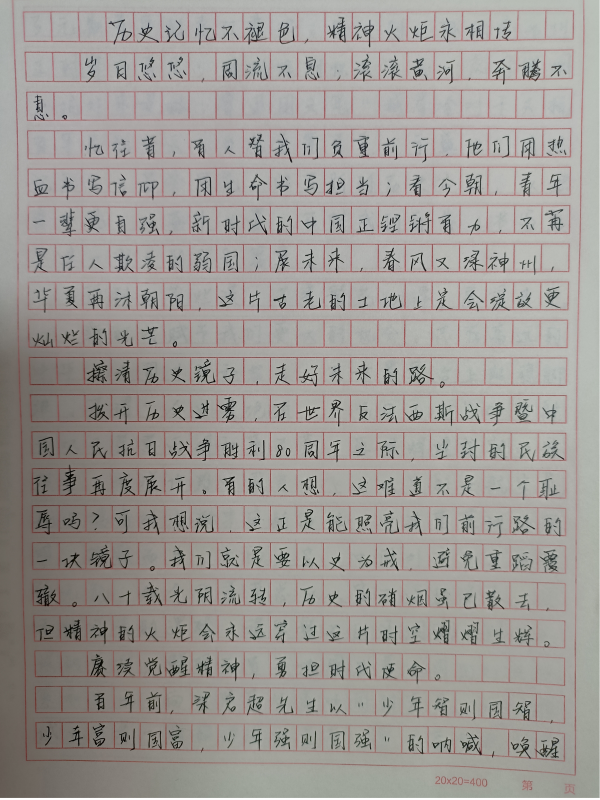 历史记忆不褪色，精神火炬永相传
岁月悠悠，周流不息；滚滚黄河，奔腾不
息。
忆往昔，有人替我们负重前行，他们用热
血书写信仰，用生命书写担当；看今朝，青年
一辈更自强，新时代的中国正铿锵有力，不再
是任人欺凌的弱国；展未来，春风又绿神州，
华夏再沐朝阳，这片古老的土地上是会绽放更
灿烂的光芒。
擦清历史镜子，走好未来的路。
拨开历史迷雾，在世界反法西斯战争暨中
国人民抗日战争胜利80周年之际，尘封的民族
往事再度展开。有的人想，这难道不是一个耻
辱吗？可我想说，这正是能照亮我们前行路的
一块镜子。我们就是要以史为戒，避免重蹈覆
辙。八十载光阴流转，历史的硝烟虽已散去，
但精神的火炬会永远穿过这片时空熠熠生辉。
赓续觉醒精神，勇担时代使命。
百年前，梁启超先生以“少年智则国智，
少年富则国富，少年强则国强”的呐喊，唤醒
20x20=400 第 页